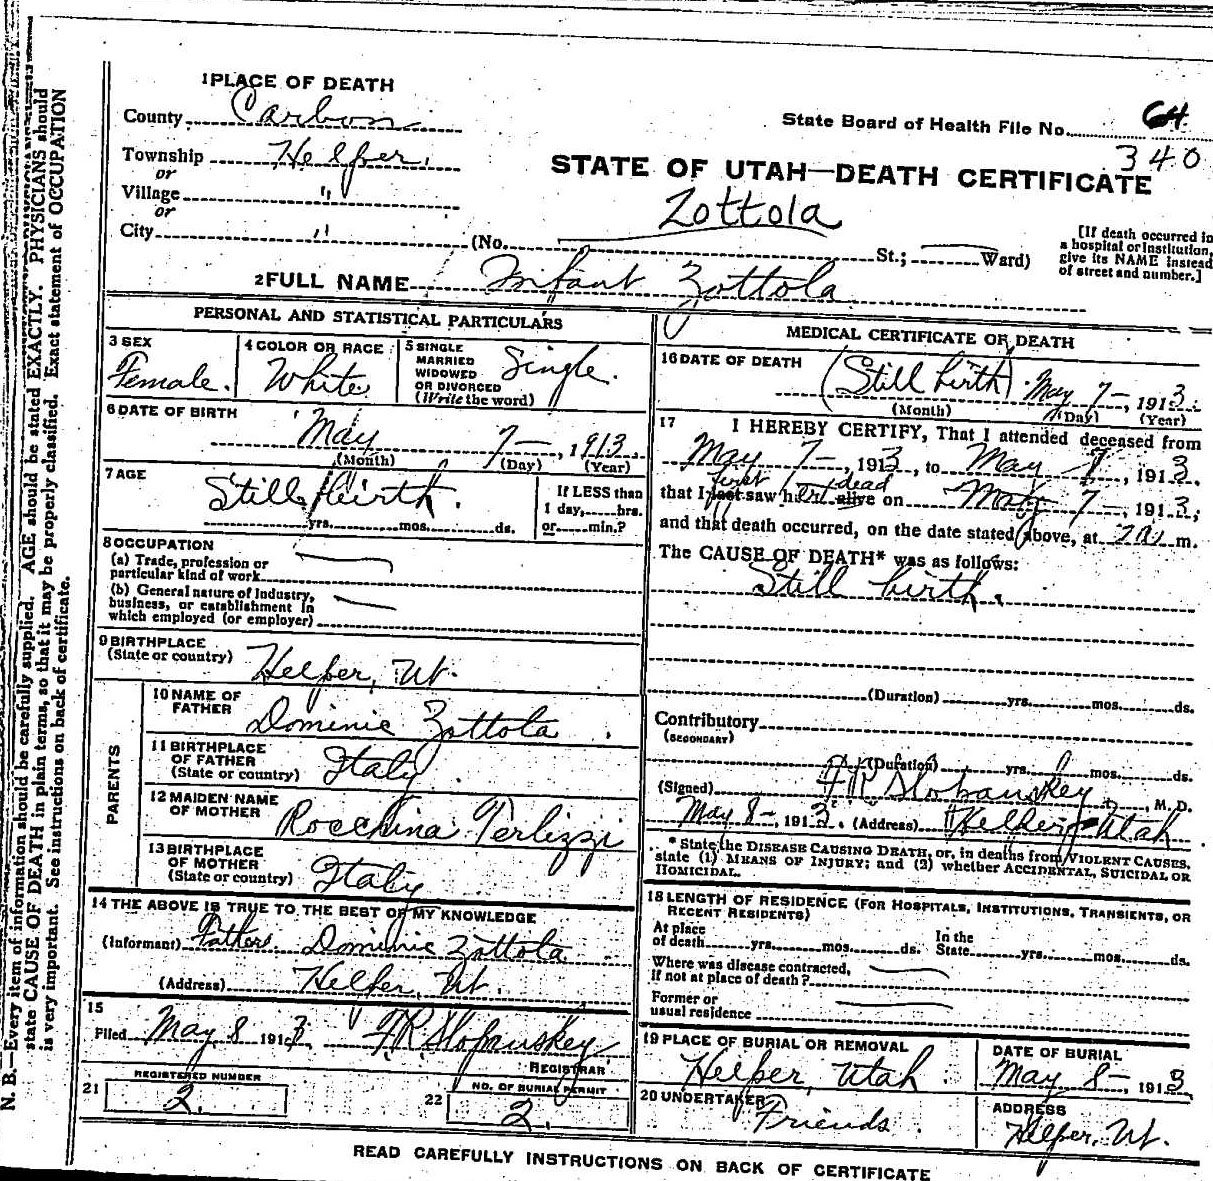 1 PLACE OF DEATH
County Carbon
State Board of Health File No. 64
340
Township Helper.
or
Village "
or
City "
STATE OF UTAH—DEATH CERTIFICATE
Zottola
(No. St.; Ward)
[If death occurred in
a hospital or institution,
give its NAME instead
of street and number.]
2 FULL NAME Infant Zottola
PERSONAL AND STATISTICAL PARTICULARS
3 SEX
Female.
4 COLOR OR RACE
White
5 SINGLE
MARRIED
WIDOWED
OR DIVORCED
(Write the word)
Single.
6 DATE OF BIRTH
May 7—, 1913.
(Month) (Day) (Year)
7 AGE
Still birth.
yrs. mos. ds.
If LESS than
1 day, hrs.
or min.?
8 OCCUPATION
(a) Trade, profession or
particular kind of work
(b) General nature of Industry,
business, or establishment in
which employed (or employer)
9 BIRTHPLACE
(State or country)
Helper, Ut.
PARENTS
10 NAME OF
FATHER
Dominic Zottola.
11 BIRTHPLACE
OF FATHER
(State or country)
Italy.
12 MAIDEN NAME
OF MOTHER
Rocchina Terlizzi
13 BIRTHPLACE
OF MOTHER
(State or country)
Italy
14 THE ABOVE IS TRUE TO THE BEST OF MY KNOWLEDGE
(Informant) Father. Dominic Zottola
(Address) Helper, Ut.
15
Filed May 8 1913. F.R. Slopanskey
REGISTRAR
21
REGISTERED NUMBER
2.
22
NO. OF BURIAL PERMIT
2.
MEDICAL CERTIFICATE OF DEATH
16 DATE OF DEATH
(Still birth). May 7—, 1913.
(Month) (Day) (Year)
17 I HEREBY CERTIFY, That I attended deceased from
May 7—, 1913, to May 8, 1913.
first dead
that I last saw her alive on May 7—, 1913;
and that death occurred, on the date stated above, at m.
The CAUSE OF DEATH* was as follows:
Still birth.
(Duration) yrs. mos. ds.
Contributory
(SECONDARY)
(Duration) yrs. mos. ds.
(Signed) F R Slopanskey, M. D.
May 8—, 1913. (Address) Helper, Utah
* State the DISEASE CAUSING DEATH, or, in deaths from VIOLENT CAUSES,
state (1) MEANS OF INJURY; and (2) whether ACCIDENTAL, SUICIDAL OR
HOMICIDAL.
18 LENGTH OF RESIDENCE (FOR HOSPITALS, INSTITUTIONS, TRANSIENTS, OR
RECENT RESIDENTS)
At place
of death yrs. mos. ds.
In the
State yrs. mos. ds.
Where was disease contracted,
if not at place of death?
Former or
usual residence
19 PLACE OF BURIAL OR REMOVAL
Helper, Utah
DATE OF BURIAL
May 8—, 1913
20 UNDERTAKER
Friends.
ADDRESS
Helper, Ut.
READ CAREFULLY INSTRUCTIONS ON BACK OF CERTIFICATE
N. B.—Every item of information should be carefully supplied. AGE should be stated EXACTLY. PHYSICIANS should
state CAUSE OF DEATH in plain terms, so that it may be properly classified. Exact statement of OCCUPATION
is very important. See instructions on back of certificate.